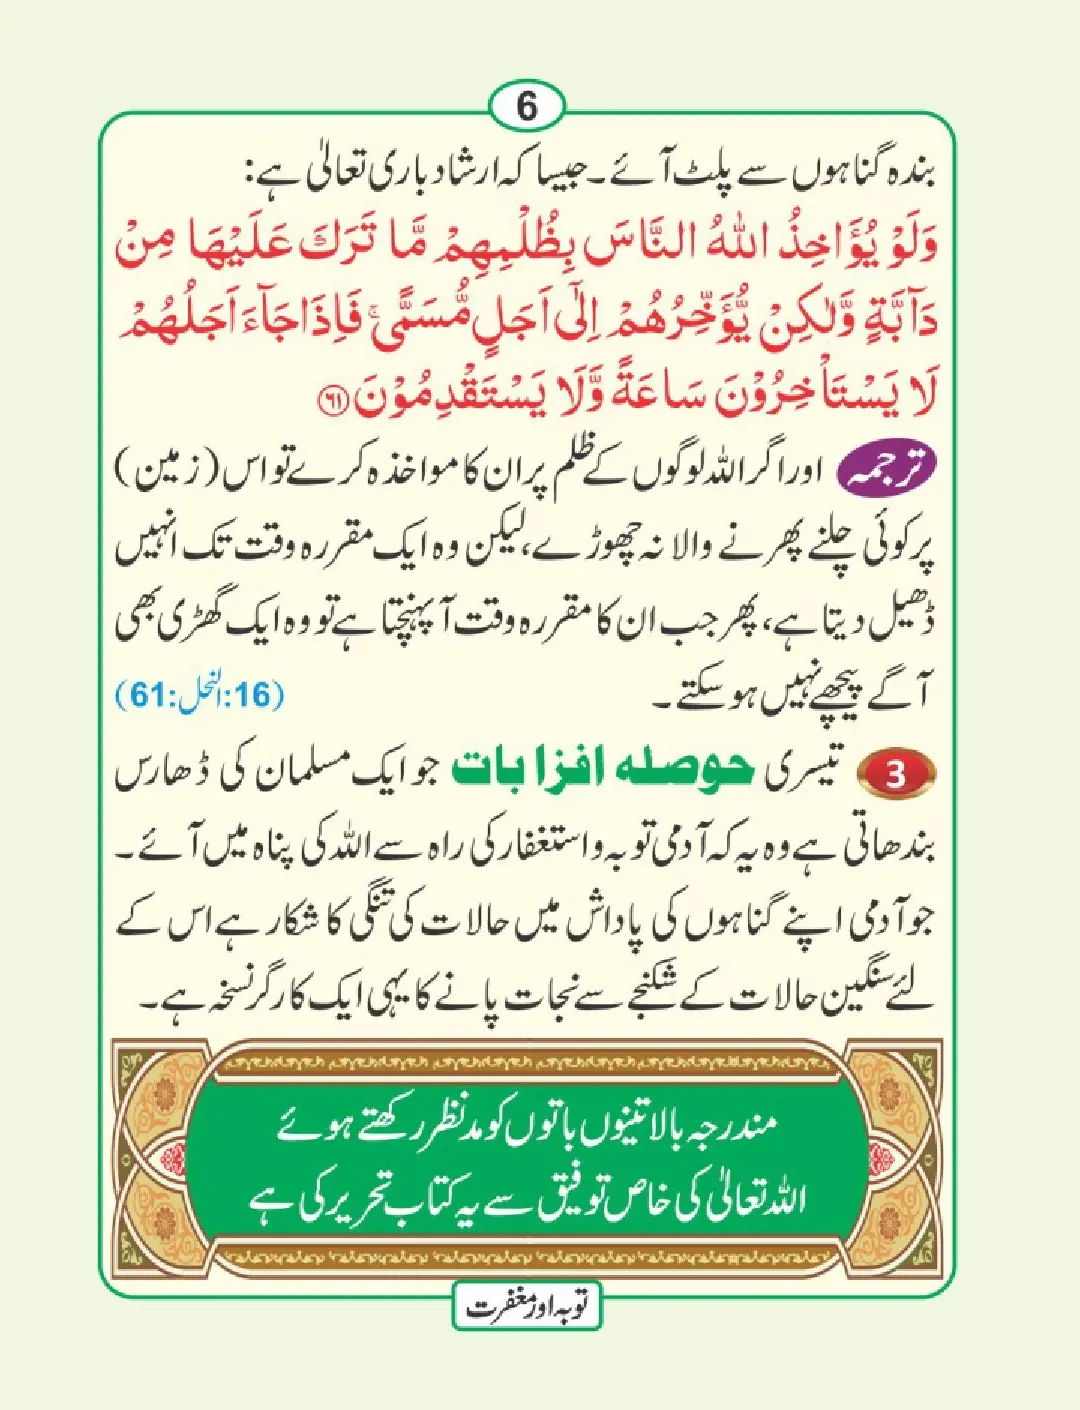 6
بندہ گناہوں سے پلٹ آئے۔ جیسا کہ ارشاد باری تعالیٰ ہے:
وَلَوْ يُؤَاخِذُ اللهُ النَّاسَ بِظُلْمِهِمْ مَّا تَرَكَ عَلَيْهَا مِنْ
دَآبَّةٍ وَّلٰكِنْ يُّؤَخِّرُهُمْ اِلٰٓى اَجَلٍ مُّسَمًّى ۚ فَاِذَا جَآءَ اَجَلُهُمْ
لَا يَسْتَاْخِرُوْنَ سَاعَةً وَّلَا يَسْتَقْدِمُوْنَ ﴿٦١﴾
ترجمہ اور اگر اللہ لوگوں کے ظلم پر ان کا مواخذہ کرے تو اس (زمین)
پر کوئی چلنے پھرنے والا نہ چھوڑے، لیکن وہ ایک مقررہ وقت تک انہیں
ڈھیل دیتا ہے، پھر جب ان کا مقررہ وقت آ پہنچتا ہے تو وہ ایک گھڑی بھی
آگے پیچھے نہیں ہو سکتے۔ (16:النحل:61)
3 تیسری حوصلہ افزا بات جو ایک مسلمان کی ڈھارس
بندھاتی ہے وہ یہ کہ آدمی توبہ و استغفار کی راہ سے اللہ کی پناہ میں آئے۔
جو آدمی اپنے گناہوں کی پاداش میں حالات کی تنگی کا شکار ہے اس کے
لئے سنگین حالات کے شکنجے سے نجات پانے کا یہی ایک کارگر نسخہ ہے۔
مندرجہ بالا تینوں باتوں کو مدنظر رکھتے ہوئے
اللہ تعالیٰ کی خاص توفیق سے یہ کتاب تحریر کی ہے
توبہ اور مغفرت